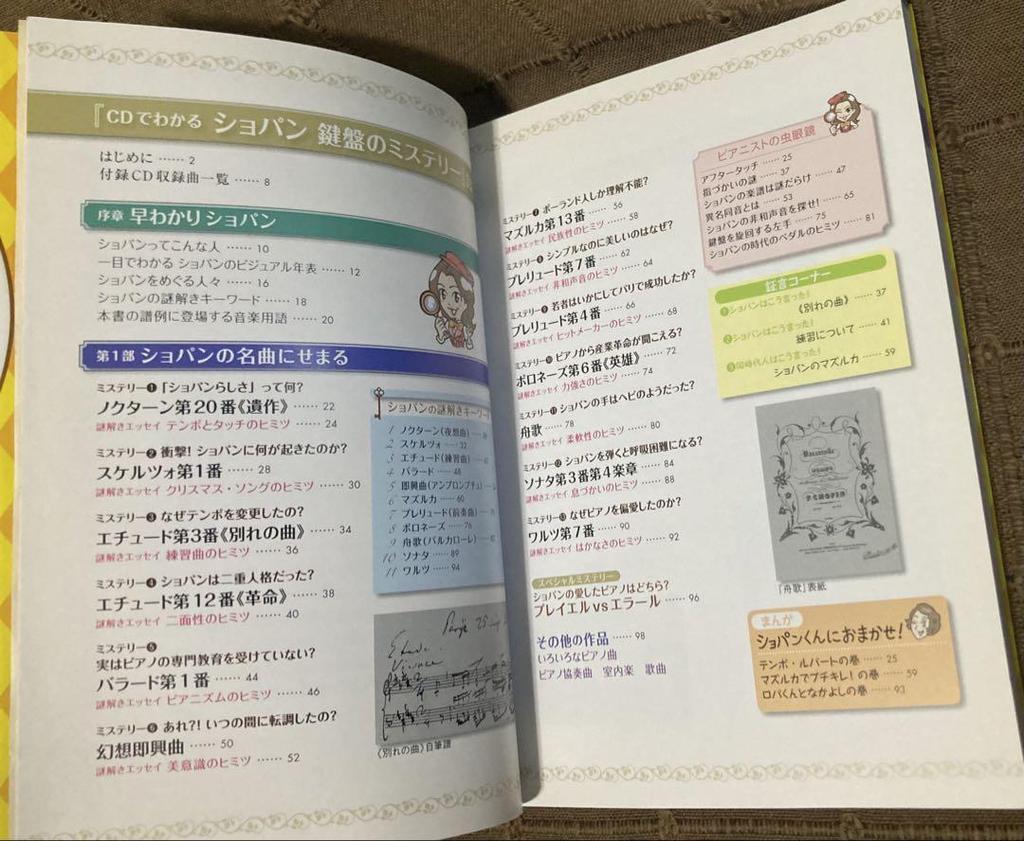 『CDでわかる ショパン 鍵盤のミステリー』
はじめに …… 2
付録CD収録曲一覧 …… 8
序章 早わかりショパン
ショパンってこんな人 …… 10
一目でわかる ショパンのビジュアル年表 …… 12
ショパンをめぐる人々 …… 16
ショパンの謎解きキーワード …… 18
本書の譜例に登場する音楽用語 …… 20
第1部 ショパンの名曲にせまる
ミステリー❶「ショパンらしさ」って何?
ノクターン第20番《遺作》 …… 22
謎解きエッセイ テンポとタッチのヒミツ …… 24
ミステリー❷ 衝撃! ショパンに何が起きたのか?
スケルツォ第1番 …… 28
謎解きエッセイ クリスマス・ソングのヒミツ …… 30
ミステリー❸ なぜテンポを変更したの?
エチュード第3番《別れの曲》 …… 34
謎解きエッセイ 練習曲のヒミツ …… 36
ミステリー❹ ショパンは二重人格だった?
エチュード第12番《革命》 …… 38
謎解きエッセイ 二面性のヒミツ …… 40
ミステリー❺
実はピアノの専門教育を受けていない?
バラード第1番 …… 44
謎解きエッセイ ピアニズムのヒミツ …… 46
ミステリー❻ あれ?! いつの間に転調したの?
幻想即興曲 …… 50
謎解きエッセイ 美意識のヒミツ …… 52
ショパンの謎解きキーワード
1 ノクターン(夜想曲)
2 スケルツォ …… 32
3 エチュード(練習曲)
4 バラード …… 48
5 即興曲(アンプロンプチュ)
6 マズルカ …… 60
7 プレリュード(前奏曲)
8 ポロネーズ …… 76
9 舟歌(バルカローレ)
10 ソナタ …… 89
11 ワルツ …… 94
Paris 25
Etude
Vivace
《別れの曲》自筆譜
ミステリー❼ ポーランド人しか理解不能?
マズルカ第13番 …… 56
謎解きエッセイ 民族性のヒミツ …… 58
ミステリー❽ シンプルなのに美しいのはなぜ?
プレリュード第7番 …… 62
謎解きエッセイ 非和声音のヒミツ …… 64
ミステリー❾ 若者はいかにしてパリで成功したか?
プレリュード第4番 …… 66
謎解きエッセイ ヒットメーカーのヒミツ …… 68
ミステリー❿ ピアノから産業革命が聞こえる?
ポロネーズ第6番《英雄》 …… 72
謎解きエッセイ 力強さのヒミツ …… 74
ミステリー⓫ ショパンの手はヘビのようだった?
舟歌 …… 78
謎解きエッセイ 柔軟性のヒミツ …… 80
ミステリー⓬ ショパンを弾くと呼吸困難になる?
ソナタ第3番第4楽章 …… 84
謎解きエッセイ 息づかいのヒミツ …… 88
ミステリー⓭ なぜピアノを偏愛したのか?
ワルツ第7番 …… 90
謎解きエッセイ はかなさのヒミツ …… 92
スペシャルミステリー
ショパンの愛したピアノはどちら?
プレイエル vs エラール …… 96
その他の作品 …… 98
いろいろなピアノ曲
ピアノ協奏曲 室内楽 歌曲
ピアニストの虫眼鏡
アフタータッチ …… 25
指づかいの謎 …… 37
ショパンの楽譜は謎だらけ …… 47
異名同音とは …… 53
ショパンの非和声音を探せ! …… 65
鍵盤を旋回する左手 …… 75
ショパンの時代のペダルのヒミツ …… 81
証言コーナー
❶ショパンはこう言った!
《別れの曲》 …… 37
❷ショパンはこう言った!
練習について …… 41
❸同時代人はこう言った!
ショパンのマズルカ …… 59
Barcarolle
F. CHOPIN
「舟歌」表紙
まんが
ショパンくんにおまかせ!
テンポ・ルバートの巻 …… 25
マズルカでブチキレ! の巻 …… 59
ロバくんとなかよしの巻 …… 93